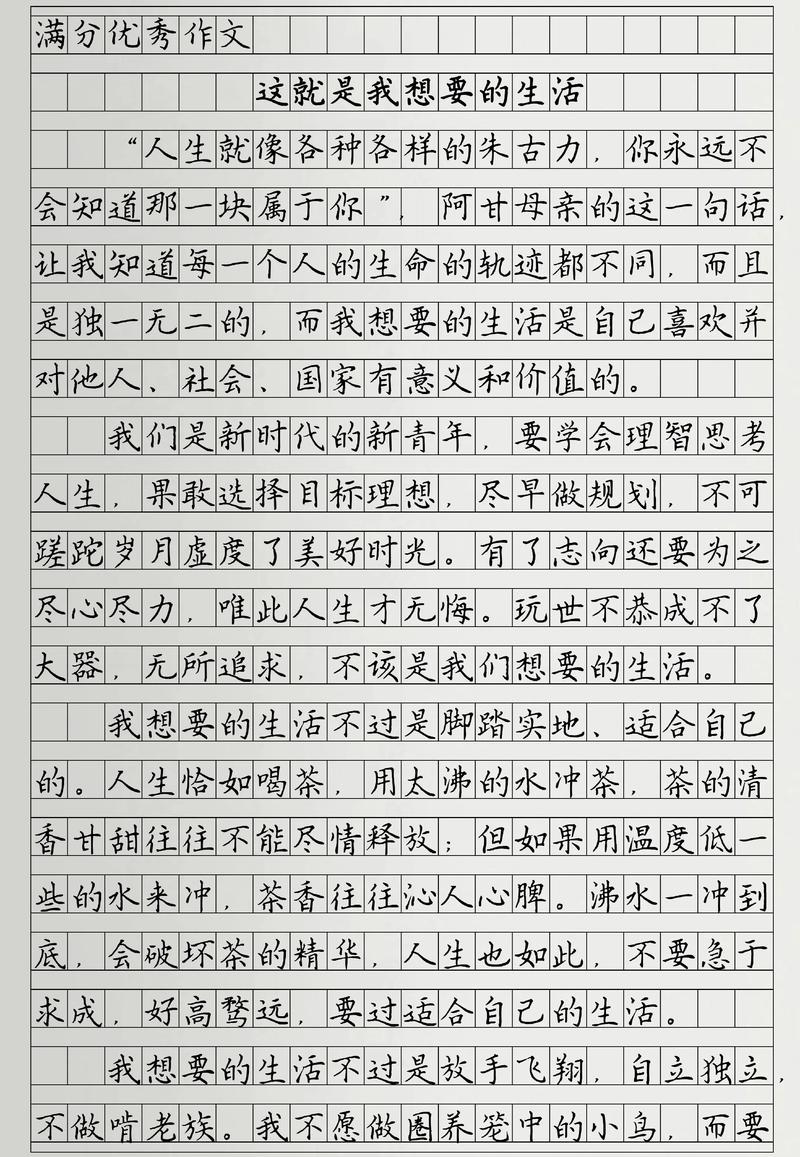 满分优秀作文
这就是我想要的生活
“人生就像各种各样的朱古力，你永远不
会知道那一块属于你”，阿甘母亲的这一句话，
让我知道每一个人的生命的轨迹都不同，而且
是独一无二的，而我想要的生活是自己喜欢并
对他人、社会、国家有意义和价值的。
我们是新时代的新青年，要学会理智思考
人生，果敢选择目标理想，尽早做规划，不可
蹉跎岁月虚度了美好时光。有了志向还要为之
尽心尽力，唯此人生才无悔。玩世不恭成不了
大器，无所追求，不该是我们想要的生活。
我想要的生活不过是脚踏实地、适合自己
的。人生恰如喝茶，用太沸的水冲茶，茶的清
香甘甜往往不能尽情释放；但如果用温度低一
些的水来冲，茶香往往沁人心脾。沸水一冲到
底，会破坏茶的精华，人生也如此，不要急于
求成，好高骛远，要过适合自己的生活。
我想要的生活不过是放手飞翔，自立独立，
不做啃老族。我不愿做圈养笼中的小鸟，而要